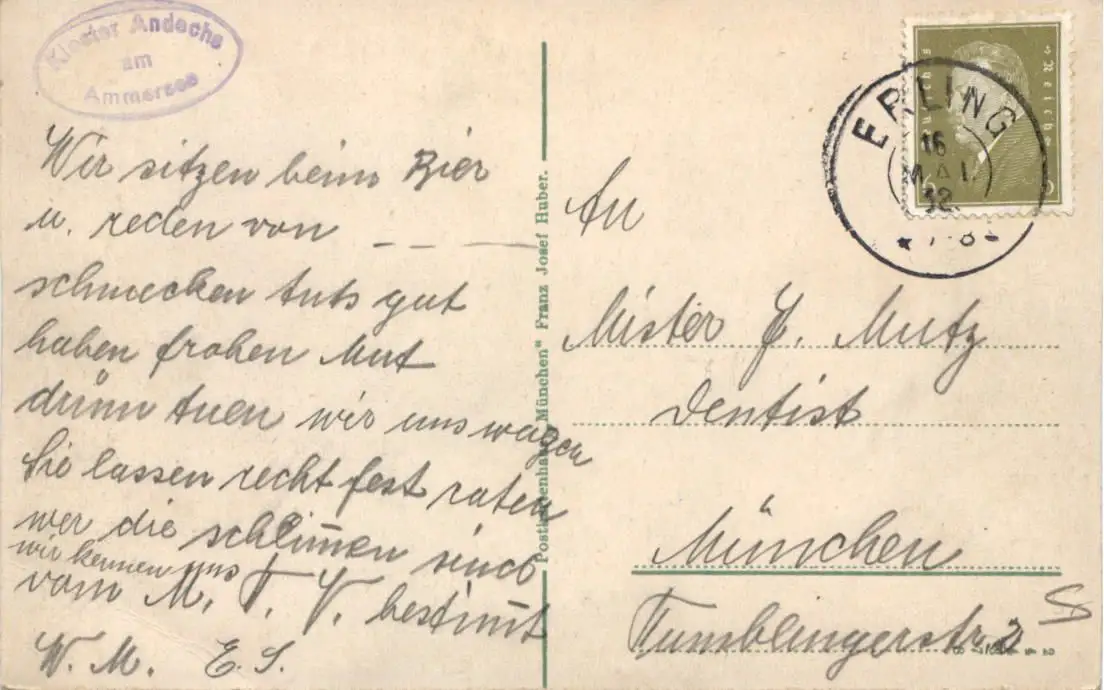 Kloster Andechs
am
Ammersee
Wir sitzen beim Bier
u. reden von _ _ _
schmecken tuts gut
haben frohen Mut
drum tuen wir uns wagen
Sie lassen recht fest raten
wer die schlim̅en sind
wir kennen uns
vom M. T. V. bestim̅t
W. M. E. S.
Postkartenhaus „München“ Franz Josef Huber.
Deutsches Reich
6 6
ERLING
16
MAI
32
7-8
An
Mister J. Mutz
Dentist
München
Tumblingerstr. 2